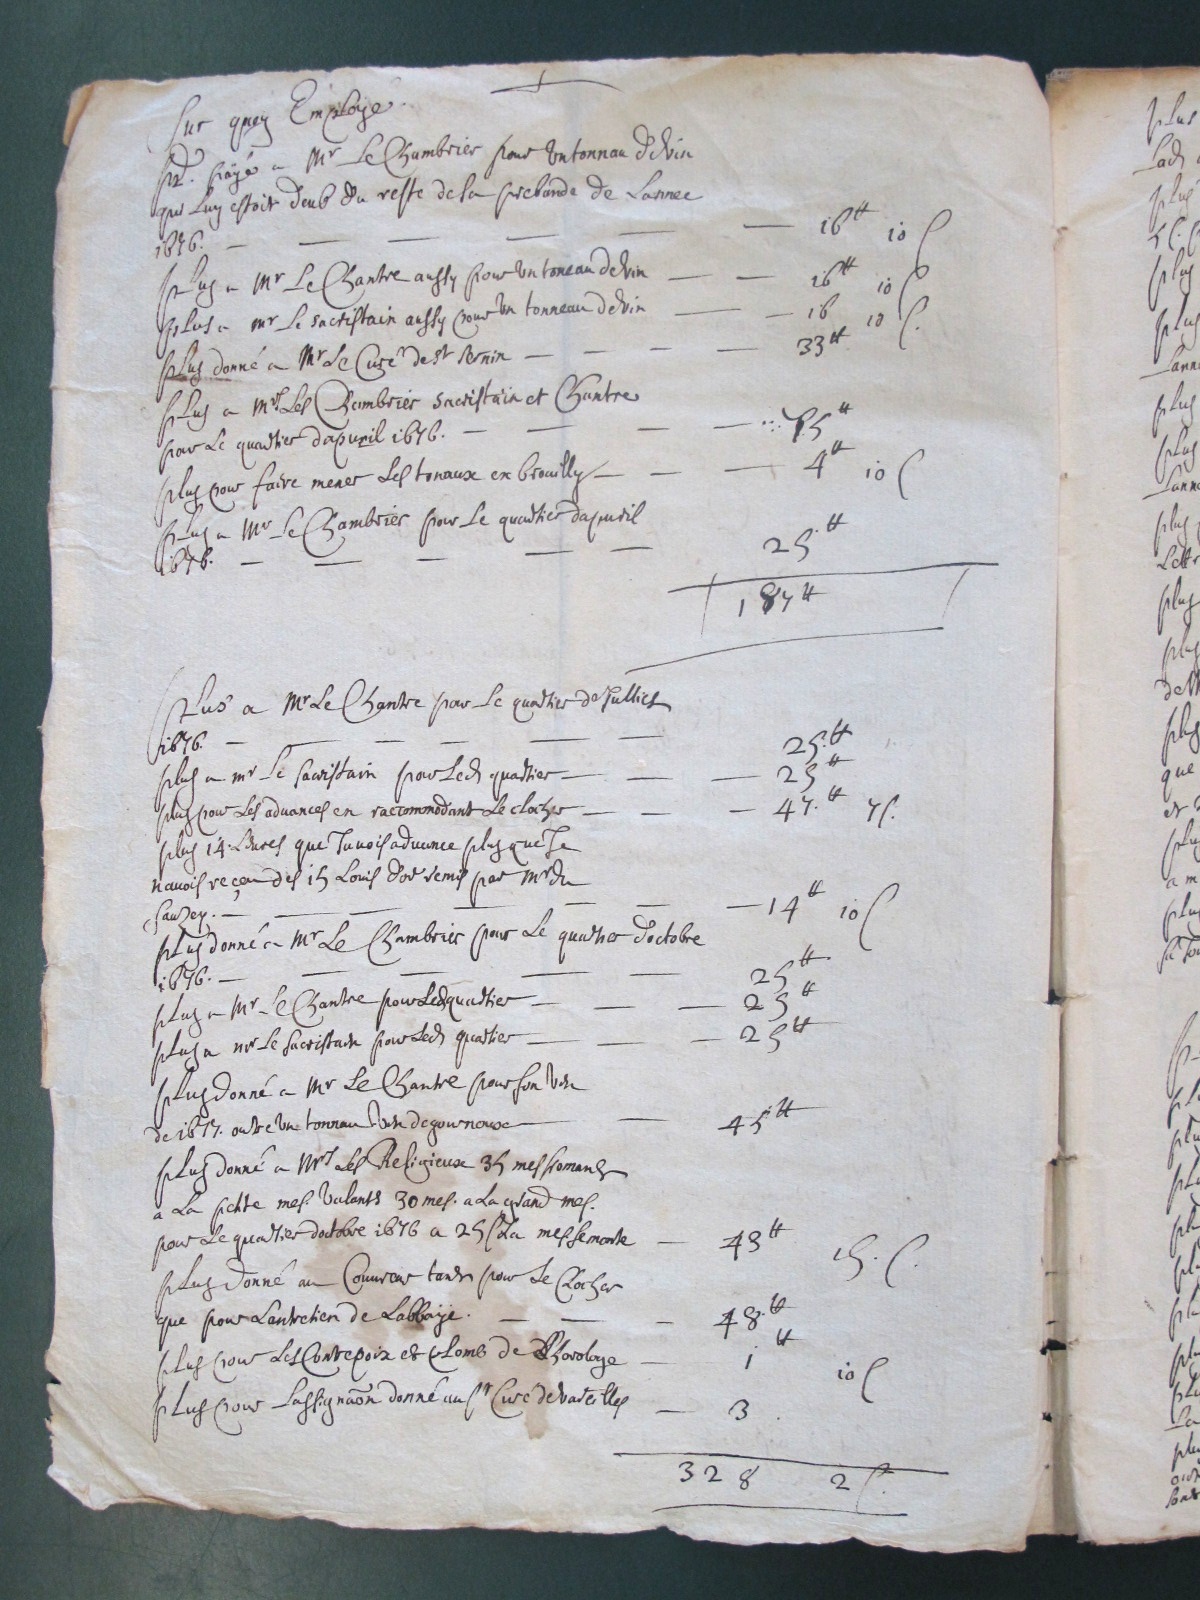 Sur quoy Employé.
pr. payé a Mr Le Chambrier pour un tonnau de vin
qui luy estoit deub du reste de la prebande de Lannee
1676. — — — — — — 16tt 10 s
plus a Mr Le Chantre aussy pour un toneau de vin — — 16tt 10 s
plus a mr Le sacristain aussy pour un tonneau de vin — — 16 10 s.
plus donné a Mr Le Curé de st Sernin — — — — 33tt
plus a Mrs Les Chambrier sacristain et Chantre
pour Le quartier dapuril 1676. — — — — 75tt
plus pour faire mener Les tonaux en brouilly — — — 4tt 10 s
plus a Mr Le Chambrier pour Le quartier dapuril
1676. — — — — — 25tt
187tt
Plus a Mr Le Chantre pour Le quartier de Julliet
1676. — — — — — — 25.tt
plus a mr Le sacristain pour Led quartier — — — 25tt
plus pour Les aduances en raccommodant Le clocher — — — 47.tt 7 s.
plus 14. Liures que Jauois aduance plus que Je
nauois reçeu des 15 Louis dor remis par Mr du
Sauzey. — — — — — — — 14tt 10 s
plus donné a Mr Le Chambrier pour Le quartier doctobre
1676. — — — — — 25tt
plus a Mr Le Chantre pour Led quartier — — — 25tt
plus a mr Le sacristain pour Led quartier — — — 25tt
plus donné a Mr Le Chantre pour son vin
de 1677. outre un tonnau vin de gournoux — — 45tt
plus donné a Mrs Les Religieux 35 mes
a La petite mes. valants 30 mes. a La grand mes.
pour Le quartier doctobre 1676 a 25 s La — 43tt 15. s.
plus donné au Couureur tant pour Le Clocher
que pour Lentretien de Labbaÿe. — — — 48.tt
plus pour Les Contrepoix et plomb de Lhorologe — 1tt 10 s
plus pour Lassignaõn donné au sr Curé de vareilles — 3.
328 2 s.